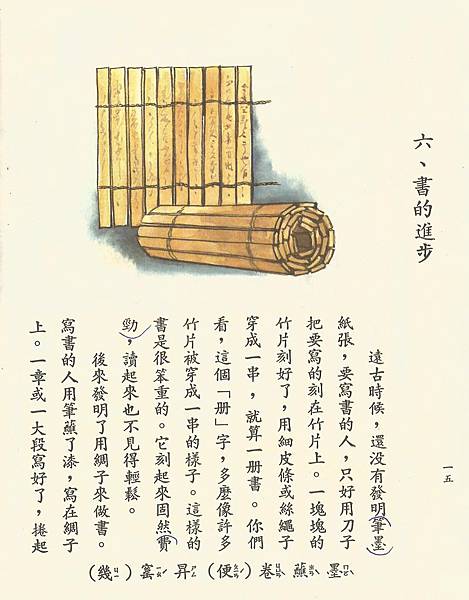 六、書的進步
遠古時候，還没有發明筆墨
紙張，要寫書的人，只好用刀子
把要寫的刻在竹片上。一塊塊的
竹片刻好了，用細皮條或絲繩子
穿成一串，就算一册書。你們
看，這個「册」字，多麼像許多
竹片被穿成一串的樣子。這樣的
書是很笨重的。它刻起來固然費
勁，讀起來也不見得輕鬆。
後來發明了用綢子來做書。
寫書的人用筆蘸了漆，寫在綢子
上。一章或一大段寫好了，捲起
墨 蘸 卷（便）昇 窰（幾）
一五